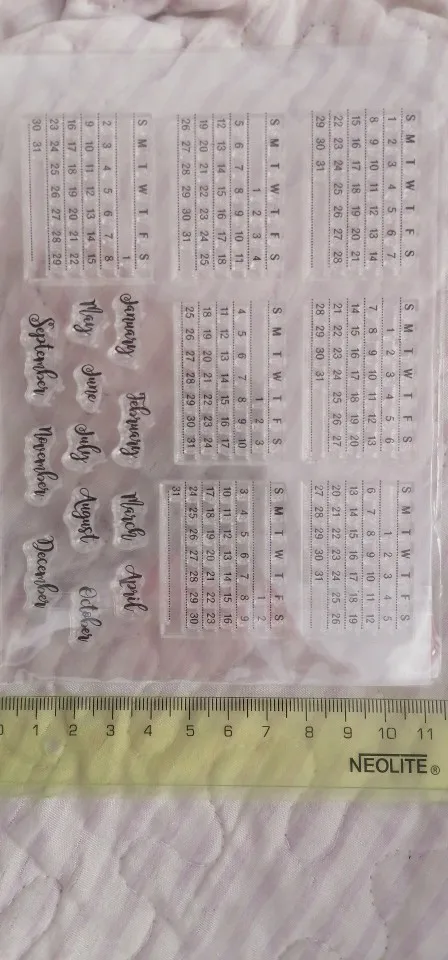 S M T W T F S
1 2 3 4 5 6 7
8 9 10 11 12 13 14
15 16 17 18 19 20 21
22 23 24 25 26 27 28
29 30 31
S M T W T F S
1 2 3 4 5 6
7 8 9 10 11 12 13
14 15 16 17 18 19 20
21 22 23 24 25 26 27
28 29 30 31
S M T W T F S
1 2 3 4 5
6 7 8 9 10 11 12
13 14 15 16 17 18 19
20 21 22 23 24 25 26
27 28 29 30 31
S M T W T F S
1 2 3 4
5 6 7 8 9 10 11
12 13 14 15 16 17 18
19 20 21 22 23 24 25
26 27 28 29 30 31
S M T W T F S
1 2 3
4 5 6 7 8 9 10
11 12 13 14 15 16 17
18 19 20 21 22 23 24
25 26 27 28 29 30 31
S M T W T F S
1 2
3 4 5 6 7 8 9
10 11 12 13 14 15 16
17 18 19 20 21 22 23
24 25 26 27 28 29 30
31
S M T W T F S
1
2 3 4 5 6 7 8
9 10 11 12 13 14 15
16 17 18 19 20 21 22
23 24 25 26 27 28 29
30 31
January February March April
May June July August October
September November December
0 1 2 3 4 5 6 7 8 9 10 11
NEOLITE®